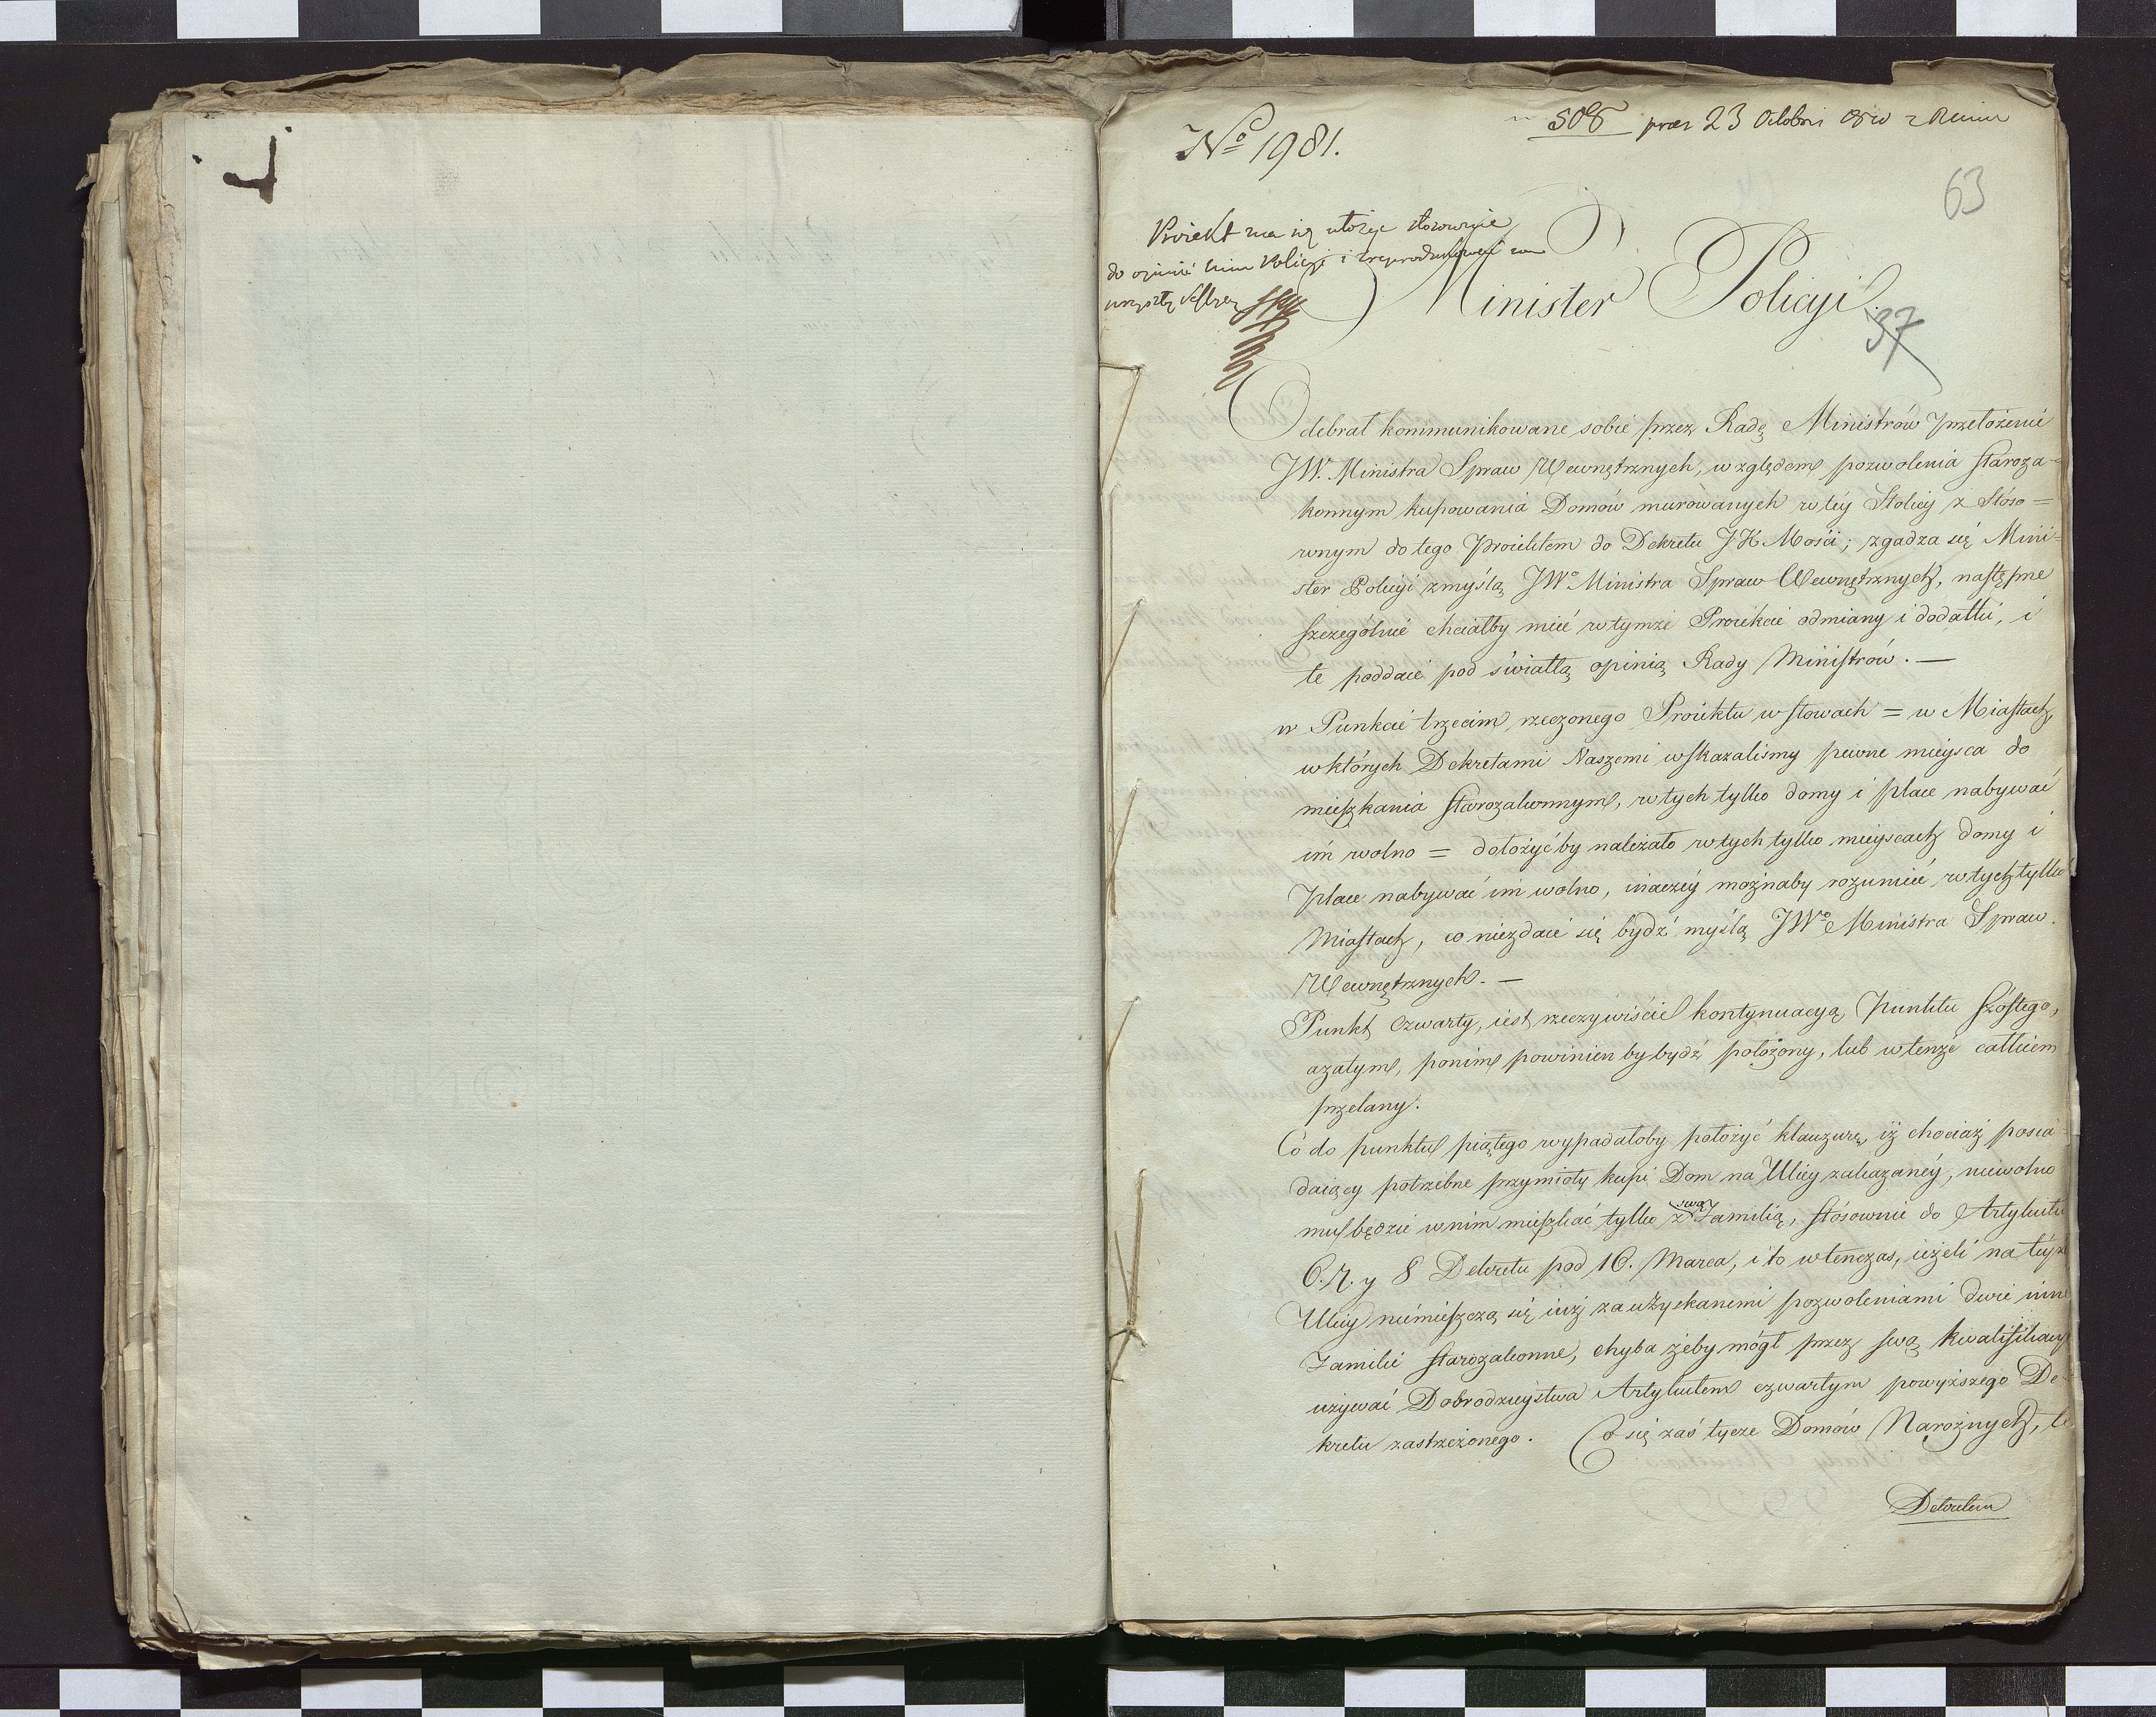 No 1981.
508 praes 23 Octobris
63
Proiekt ma się ułożyć stosownie
do opinii Min Policyi i
Minister Policyi.
37
Odebrał kommunikowane sobie przez Radę Ministrów przełożenie
JW. Ministra Spraw Wewnętrznych, względem pozwolenia Staroza-
konnym kupowania Domów murowanych w tey Stolicy z Stóso=
wnym do tego Proiektem do Dekretu JK Mości; zgadza się Mini=
ster Policyi z myślą JWo Ministra Spraw Wewnętrznych, następne
szczególnie chciałby mieć w tymże Proiekcie odmiany i dodatki, i
te poddaie pod światłą opinią Rady Ministrów. —
w Punkcie trzecim rzeczonego Proiektu w słowach = w Miastach,
w których Dekretami Naszemi wskazalismy pewne mieysca do
mieszkania Starozakonnym, w tych tylko domy i place nabywać
im wolno = dołożyć by należało w tych tylko mieyscach domy i
place nabywać im wolno, inaczéy możnaby rozumieć w tych tylko
Miastach, co niezdaie się bydź myślą JWo Ministra Spraw
Wewnętrznych. —
Punkt Czwarty, iest rzeczywiście kontynuacyą Punktu Szóstego,
azatym, po nim powinien by bydź położony, lub w tenże całkiem
przelany.
Co do punktu piątego wypadałoby położyć klauzurę, iż chociaż posia=
daiący potrzebne przymioty kupi Dom na Ulicy zakazanéy, niewolno
mu będzie w nim mieszkać tylko z swą Familią, stósownie do Artykułu
6. 7. y 8 Dekretu pod 16. Marca, i to wtenczas, ieżeli na teyże
Ulicy niemieszczą się iuż za uzyskanemi pozwoleniami dwie inne
Familie starozakonne, chyba żeby mógł przez swą kwalifikacyą
używać Dobrodzieystwa Artykułem czwartym powyższego De-
kretu zastrzeżonego. Co się zaś tycze Domów Narożnych, te
Dekretem